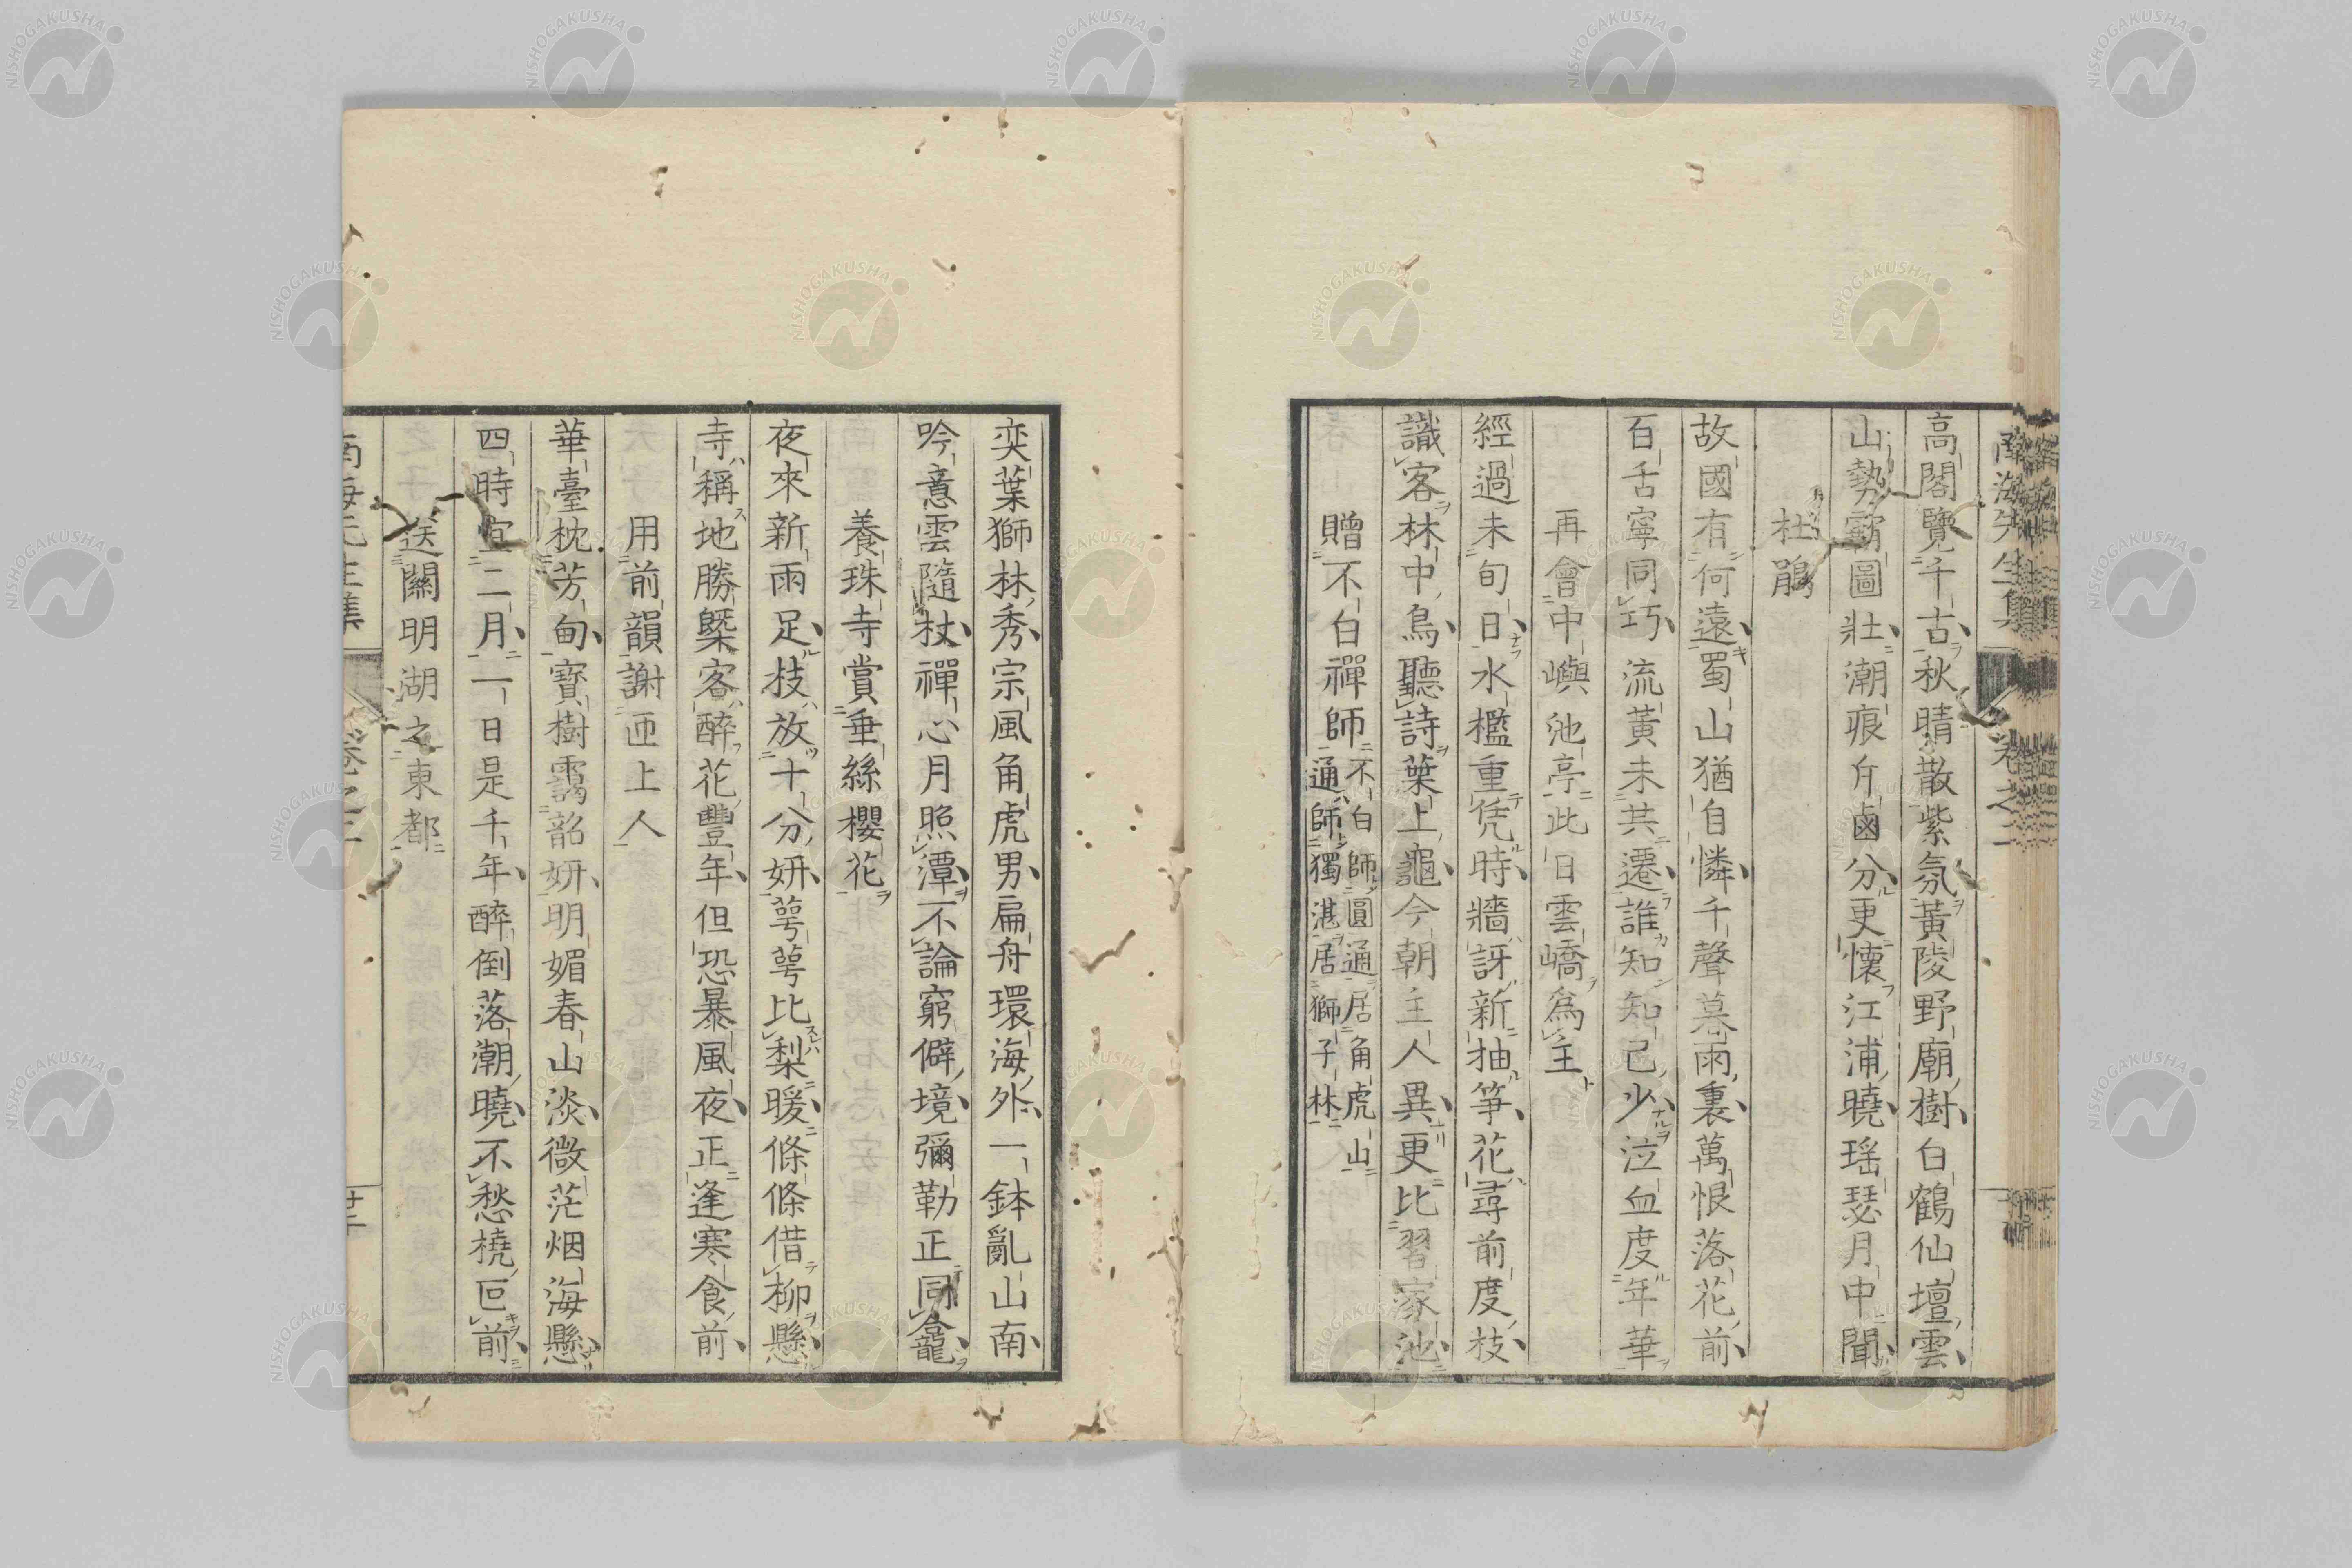 南海先生集 卷之二
高閣覽千古秋晴散紫氛黃陵野廟樹白鶴仙壇雲
山勢霸圖壯潮痕斥鹵分更懷江浦曉瑶瑟月中聞
杜鵑
故國有何遠蜀山猶自憐千聲暮雨裏萬恨落花前
百舌寧同巧流黃未共遷誰知知己少泣血度年華
再會中嶼池亭此日雲嶠爲主
經過未旬日水檻重凭時牆訝新抽筝花尋前度枝
識客林中鳥聽詩葉上龜今朝主人異更比習家池
贈不白禪師
不白師圓通居角虎山
通師獨湛居獅子林
奕葉獅林秀宗風角虎男扁舟環海外一鉢亂山南
吟意雲隨杖禪心月照潭不論窮僻境彌勒正同龕
養珠寺賞垂絲櫻花
夜來新雨足枝放十分妍萼萼比梨暖條條借柳懸
寺稱地勝槩客醉花豐年但恐暴風夜正逢寒食前
用前韻謝逈上人
華臺枕芳甸寶樹靄韶妍明媚春山淡微茫烟海懸
四時宜二月一日是千年醉倒落潮曉不愁橈叵前
送關明湖之東都
南海先生集 卷之二 廿二